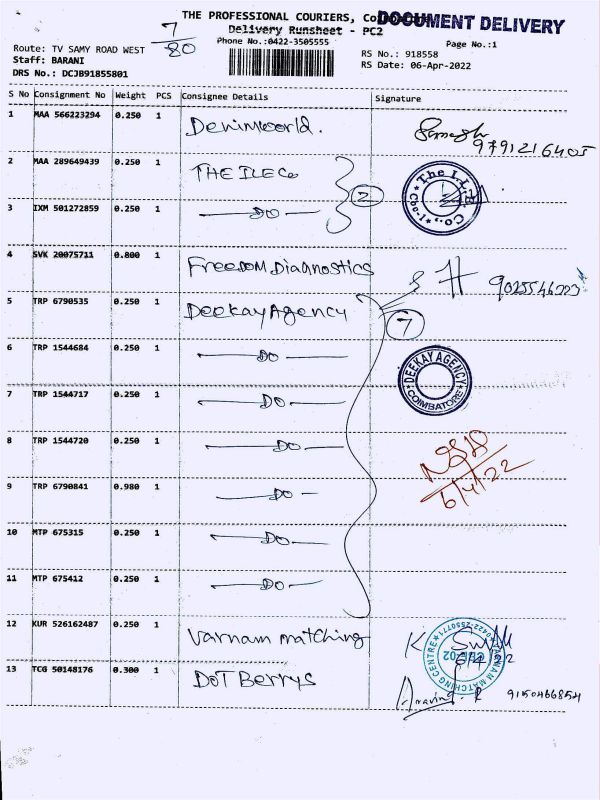 THE PROFESSIONAL COURIERS,
DOCUMENT DELIVERY
Delivery Runsheet - PC2
Phone No.:0422-3505555
7/80
Page No.:1
Route: TV SAMY ROAD WEST
Staff: BARANI
DRS No.: DCJB91855801
RS No.: 918558
RS Date: 06-Apr-2022
S No Consignment No Weight PCS Consignee Details Signature
1 MAA 566223294 0.250 1 Denimworld.
9791216405
2 MAA 289649439 0.250 1 THE ILECo
2
The I.L.E. Co.,
3 IXM 501272859 0.250 1 DO
4 SVK 20075711 0.800 1 Freedom Diagnostics
9025546223
5 TRP 6790535 0.250 1 Deekay Agency
7
6 TRP 1544684 0.250 1 DO
DEEKAY AGENCY
COIMBATORE
7 TRP 1544717 0.250 1 DO
8 TRP 1544720 0.250 1 DO
6/4/22
9 TRP 6790841 0.980 1 DO
10 MTP 675315 0.250 1 DO
11 MTP 675412 0.250 1 DO
12 KUR 526162487 0.250 1 Varnam matching
VARNAM MATCHING CENTRE
13 TCG 50148176 0.300 1 DoT Berrys
Aravind. R 9150466854